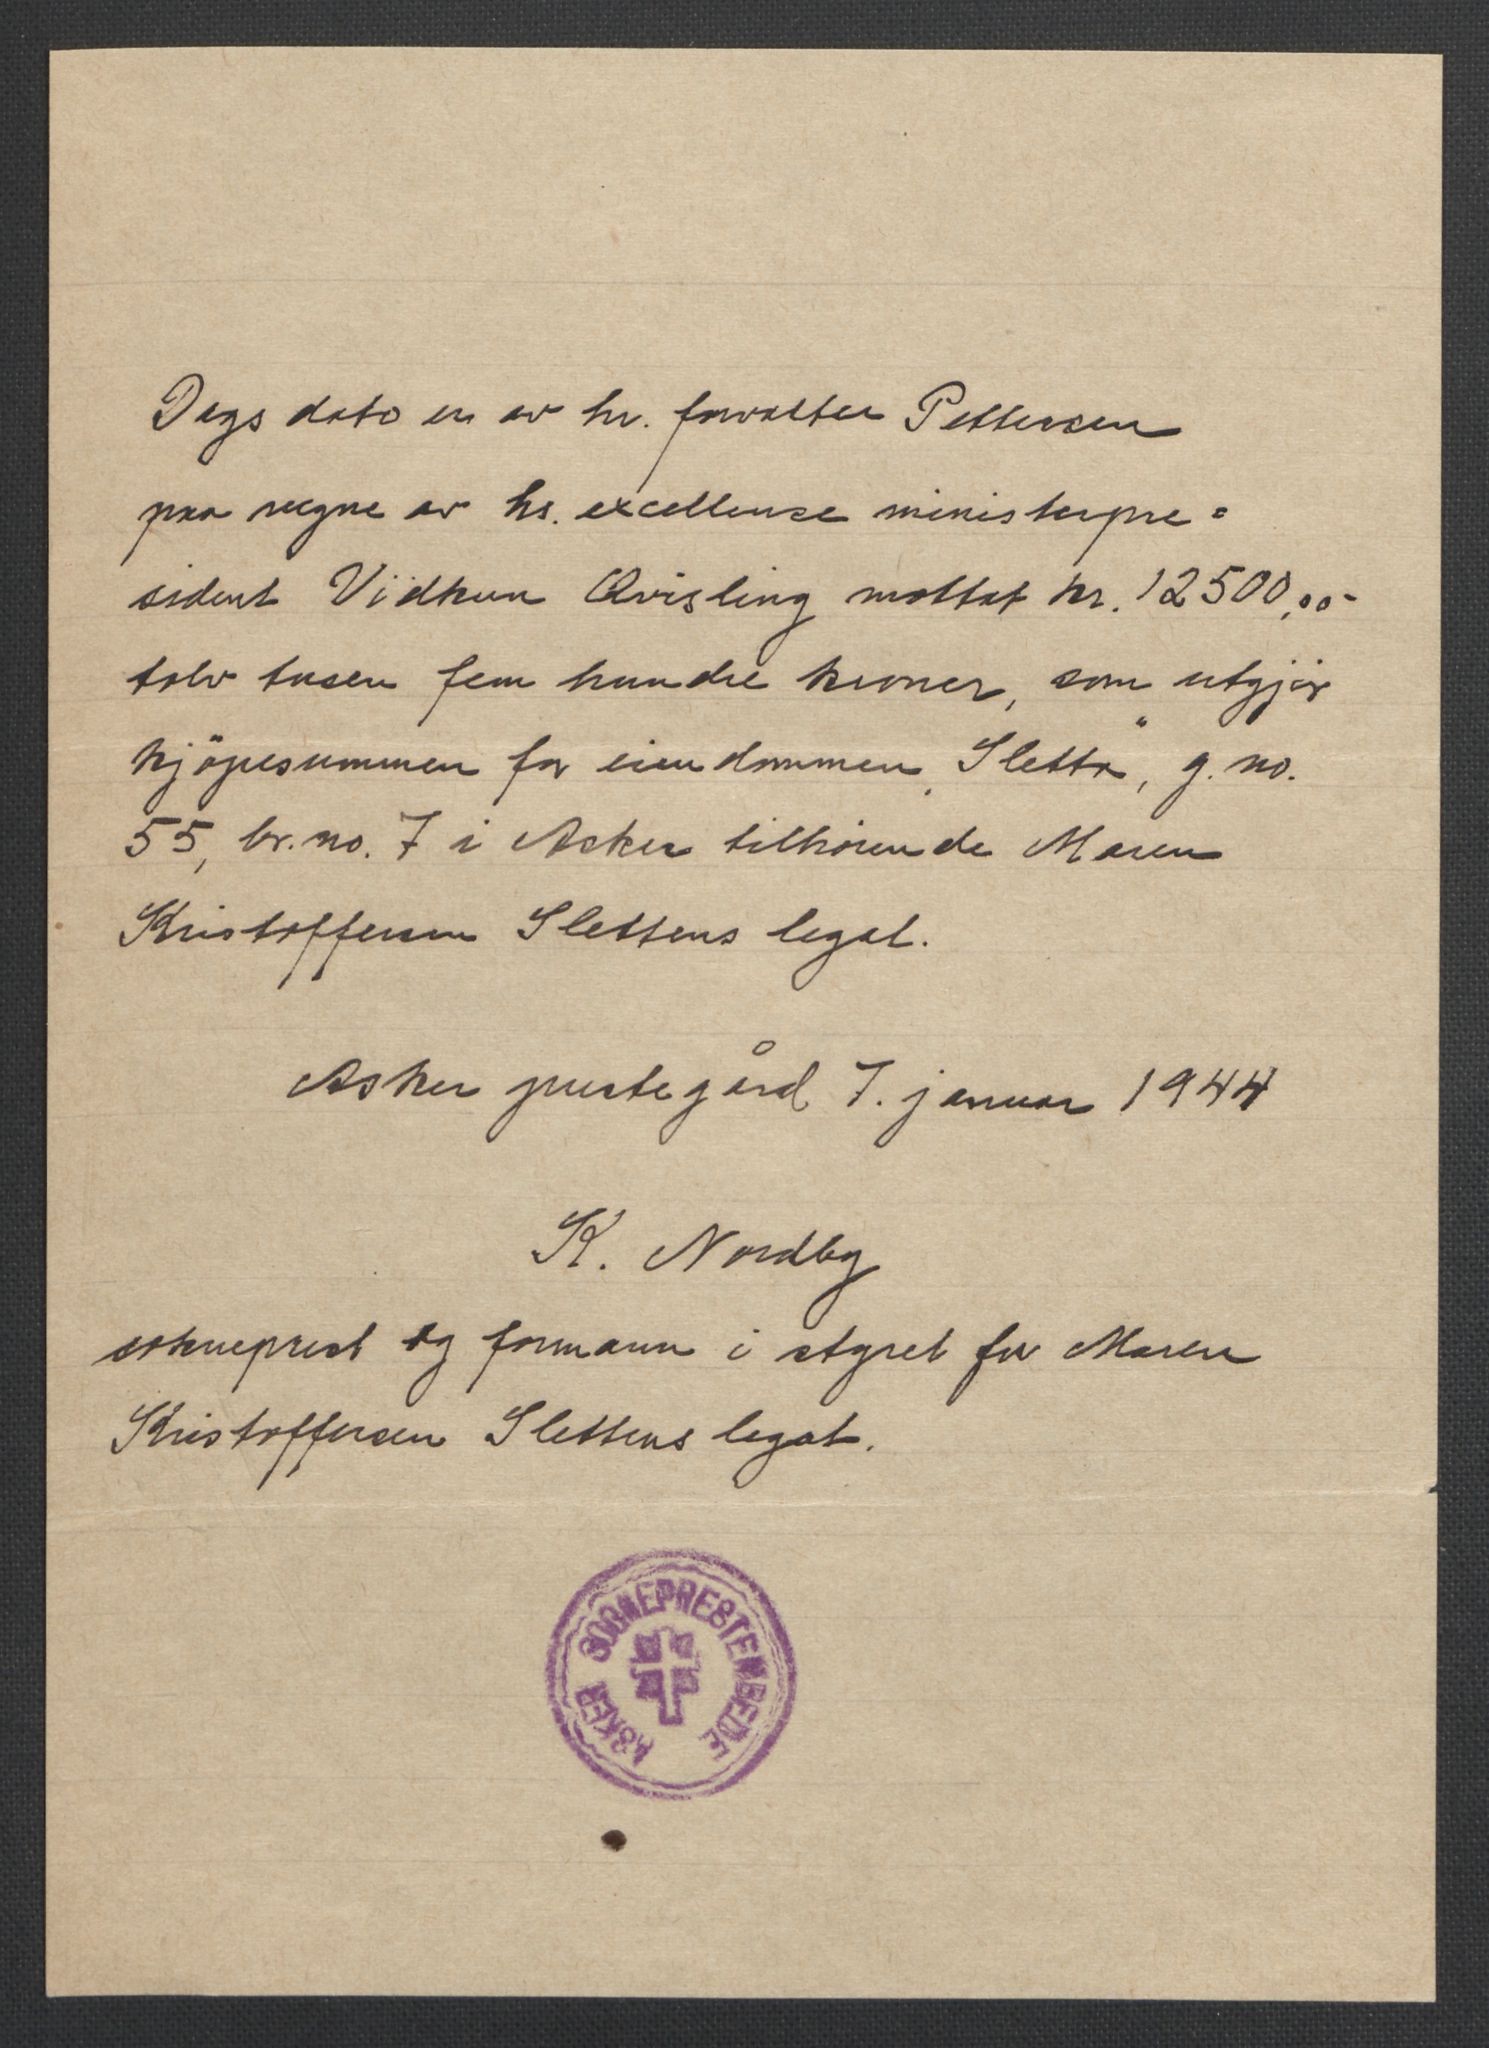 Dags dato er av hr. forvalter Pettersen
paa vegne av hs. excellense ministerpre=
sident Vidkun Qvisling mottat kr. 12500,00-
tolv tusen fem hundre kroner, som utgjør
kjöpesummen for eiendommen „Sletta", g. no.
55, br. no. 7 i Asker tilhörende Maren
Kristoffersen Slettens legat.
Asker prestegård 7. januar 1944
K. Nordby
sokneprest og formann i styret for Maren
Kristoffersen Slettens legat.
ASKER SOGNEPRESTEMBEDE